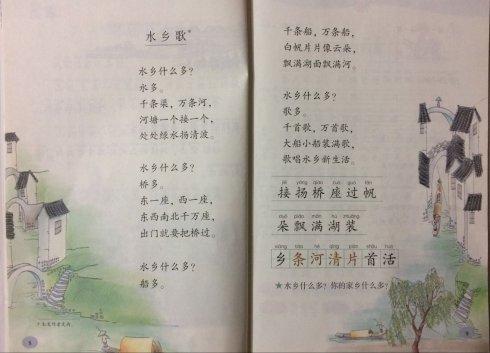 水乡歌*
水乡什么多？
水多。
千条渠，万条河，
河塘一个接一个，
处处绿水扬清波。
水乡什么多？
桥多。
东一座，西一座，
东西南北千万座，
出门就要把桥过。
水乡什么多？
船多。
千条船，万条船，
白帆片片像云朵，
飘满湖面飘满河。
水乡什么多？
歌多。
千首歌，万首歌，
大船小船装满歌，
歌唱水乡新生活。
jiē yáng qiáo zuò guò fān
接扬桥座过帆
duǒ piāo mǎn hú zhuāng
朵飘满湖装
xiāng tiáo hé qīng piàn shǒu huó
乡条河清片首活
★水乡什么多？你的家乡什么多？